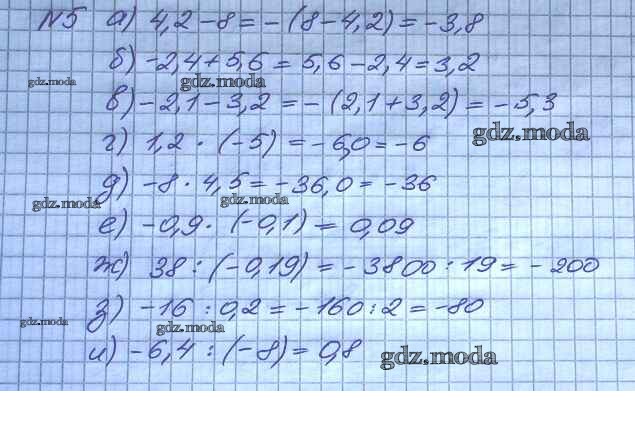 N5 а) 4,2 - 8 = - (8 - 4,2) = - 3,8
б) -2,4 + 5,6 = 5,6 - 2,4 = 3,2
gdz.moda
gdz.moda
в) - 2,1 - 3,2 = - (2,1 + 3,2) = - 5,3
г) 1,2 · (-5) = - 6,0 = - 6
gdz.moda
д) -8 · 4,5 = - 36,0 = - 36
gdz.moda
gdz.moda
е) -0,9 · (-0,1) = 0,09
ж) 38 : (-0,19) = - 3800 : 19 = - 200
з) -16 : 0,2 = - 160 : 2 = -80
gdz.moda
gdz.moda
и) - 6,4 : (-8) = 0,8
gdz.moda